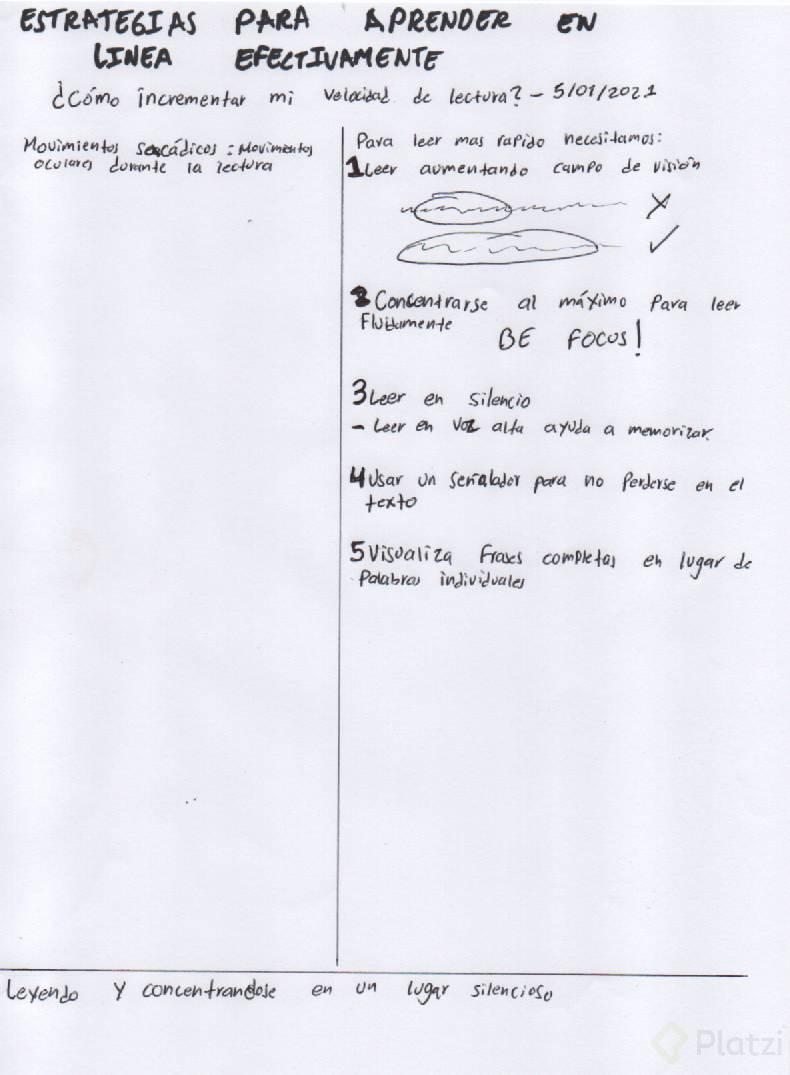 ESTRATEGIAS PARA APRENDER EN
LINEA EFECTIVAMENTE
¿Cómo incrementar mi velocidad de lectura? - 5/01/2021
Movimientos Sacádicos : Movimientos
oculares durante la lectura
Para leer mas rapido necesitamos:
1 Leer aumentando campo de visión
2 Concentrarse al máximo para leer
Fluidamente
BE FOCUS!
3 Leer en silencio
- Leer en voz alta ayuda a memorizar.
4 Usar un señalador para no perderse en el
texto
5 Visualiza frases completas en lugar de
Palabras individuales
Leyendo y concentrandose en un lugar silencioso
Platzi